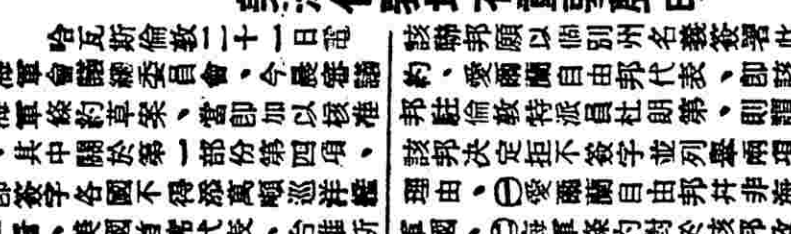 哈瓦斯倫敦二十一日電
海軍會議總委員會、今晨審議
海軍條約草案、當即加以核准
、其中關於第一部份第四項、
即簽字各國不得發萬噸巡洋艦
該聯邦願以個別州名義簽署此
約、愛爾蘭自由邦代表、即該
邦駐倫敦特派員杜朗第、則謂
該邦決定拒不簽字並列舉兩項
理由、㊀愛爾蘭自由邦幷非海
軍國、㊁海軍條約對於該邦